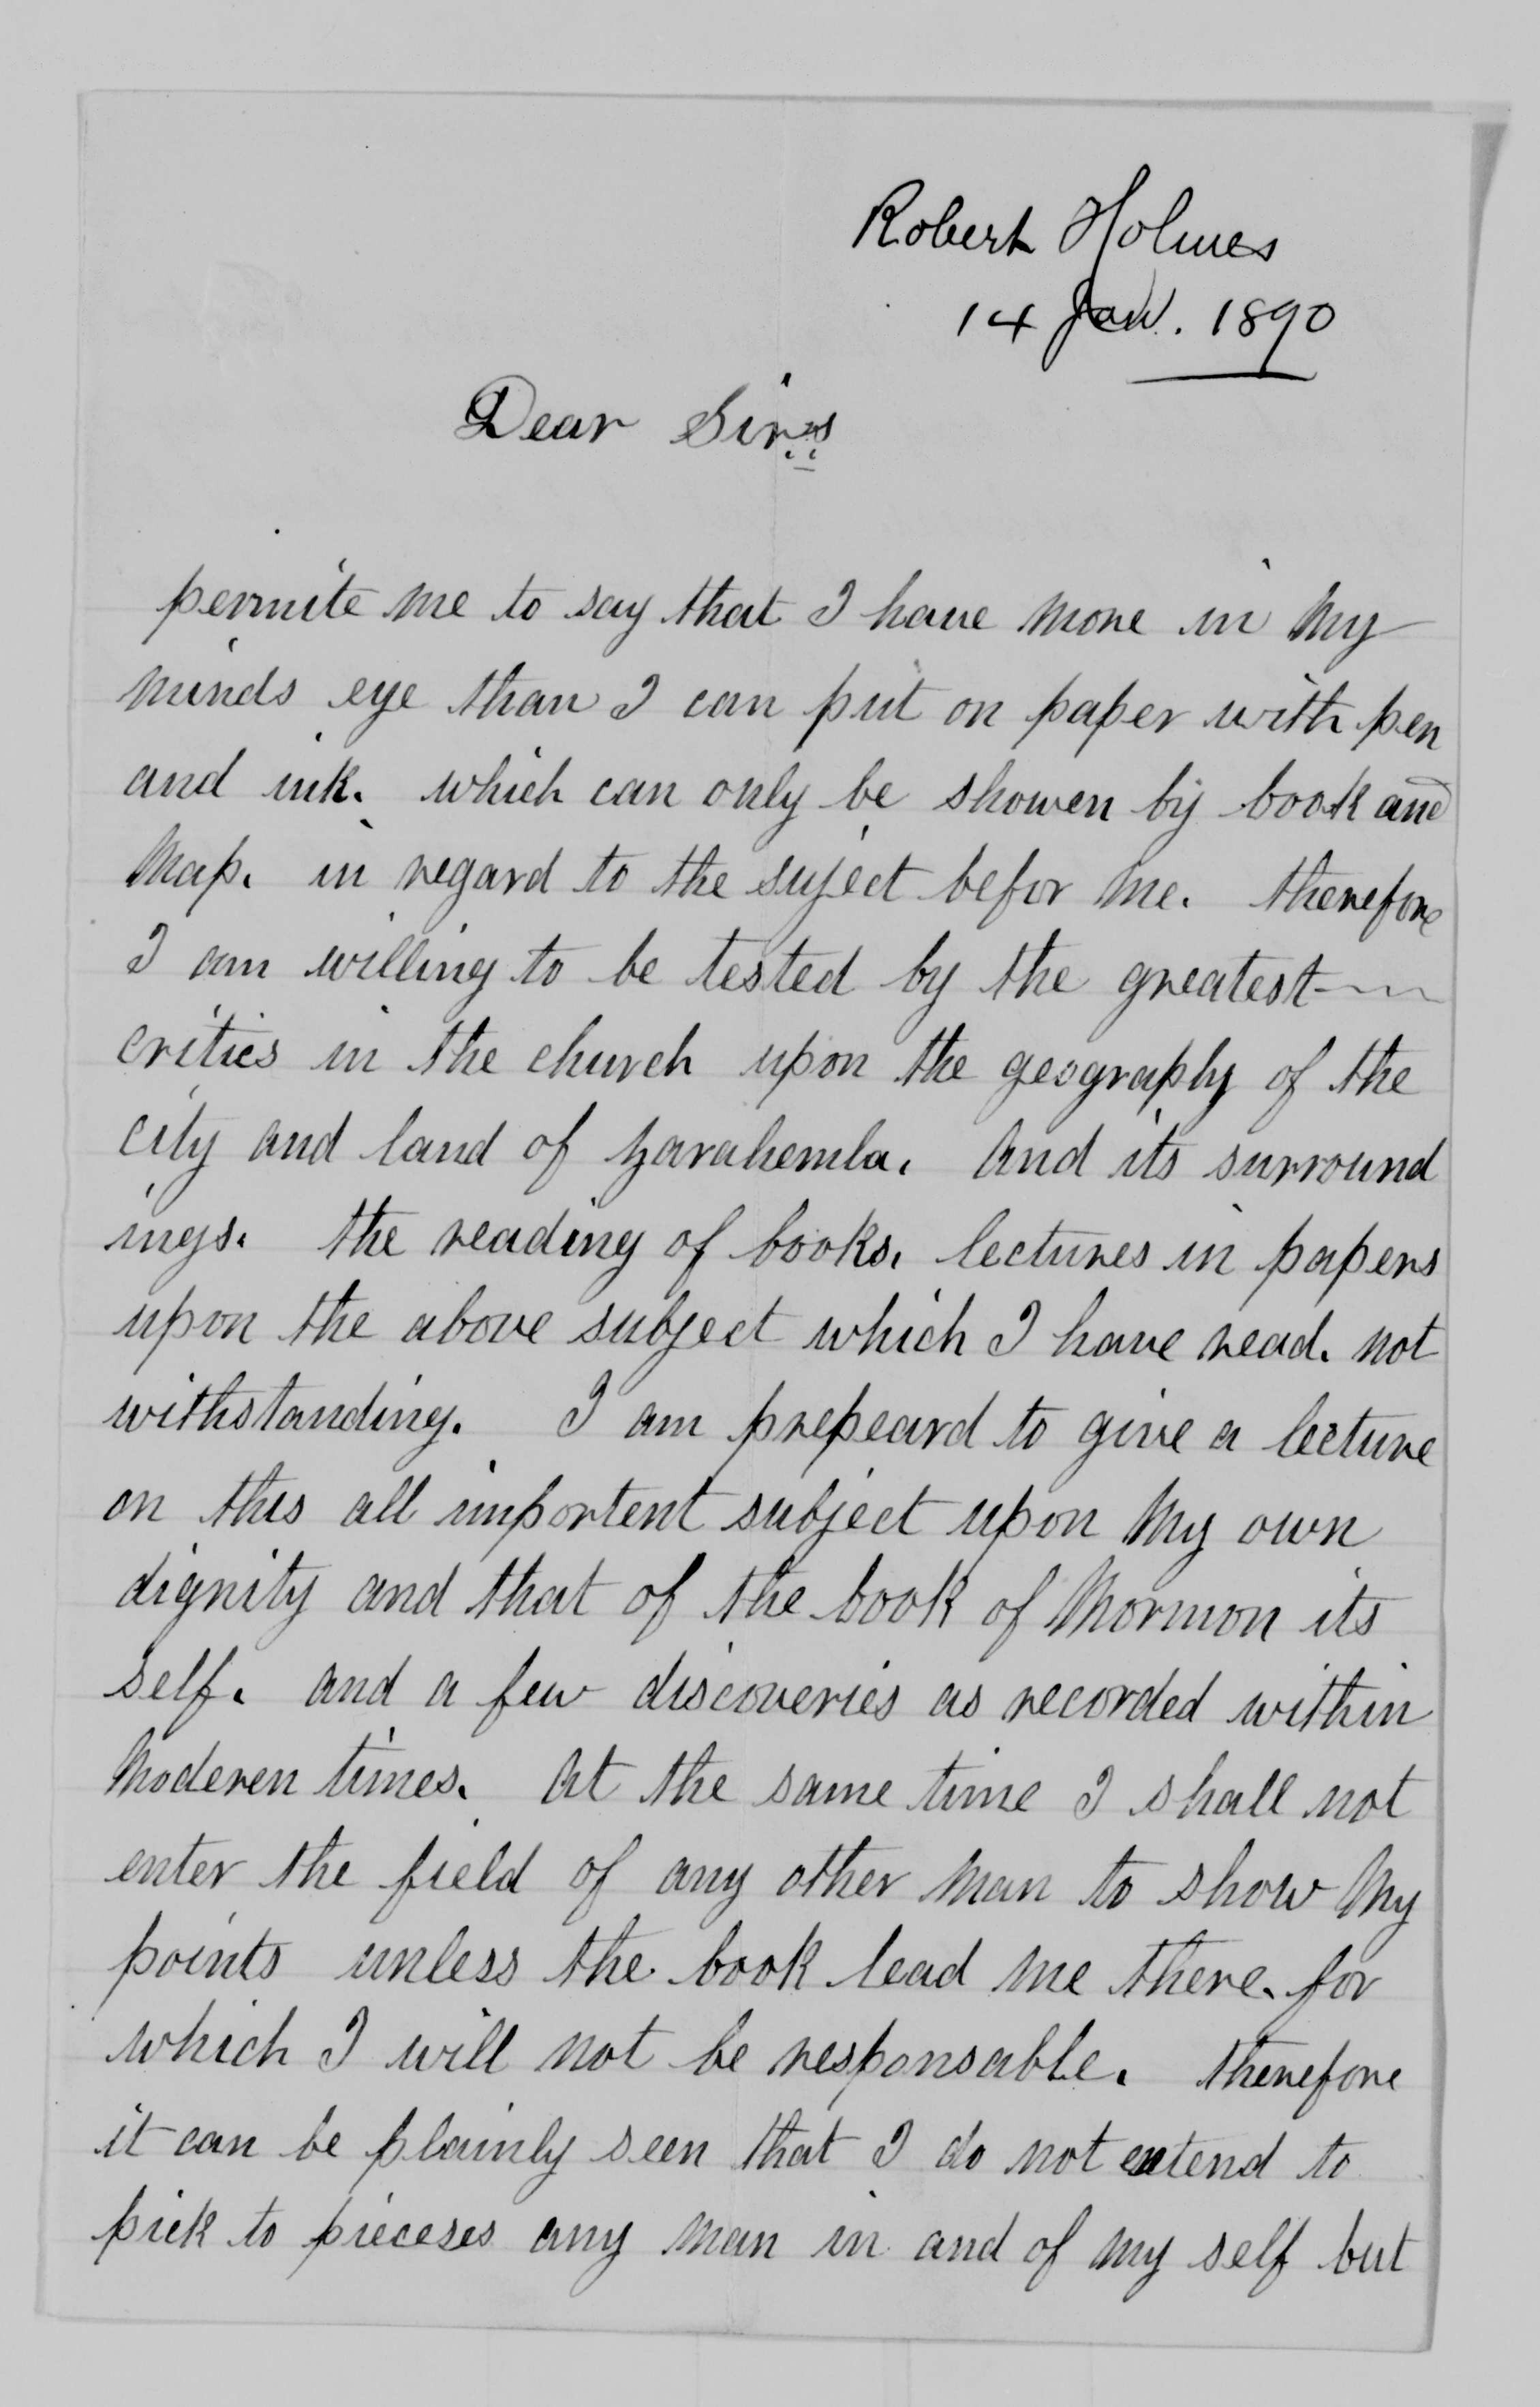 Robert Holmes
14 Jan. 1890
Dear Sirs
permite me to say that I have more in my
minds eye than I can put on paper with pen
and ink. which can only be showen by book and
map. in regard to the suject befor me. therefore
I am willing to be tested by the greatest
critics in the church upon the geography of the
city and land of zarahemla. and its surround
ings. the reading of books. lectures in papers
upon the above subject which I have read. not
withstanding. I am prepeard to give a lecture
on this all importent subject upon my own
dignity and that of the book of Mormon its
self. and a few discoveries as recorded within
moderen times. at the same time I shall not
enter the field of any other man to show my
points unless the book lead me there. for
which I will not be responsable. therefore
it can be plainly seen that I do not entend to
pick to pieceses any man in and of my self but